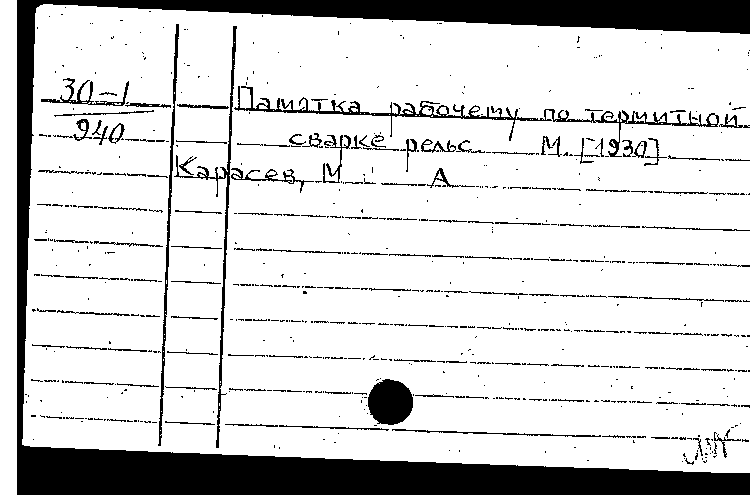 30-1
940
Памятка рабочему по термитной
сварке рельс. М. [1930].
Карасев, М. А